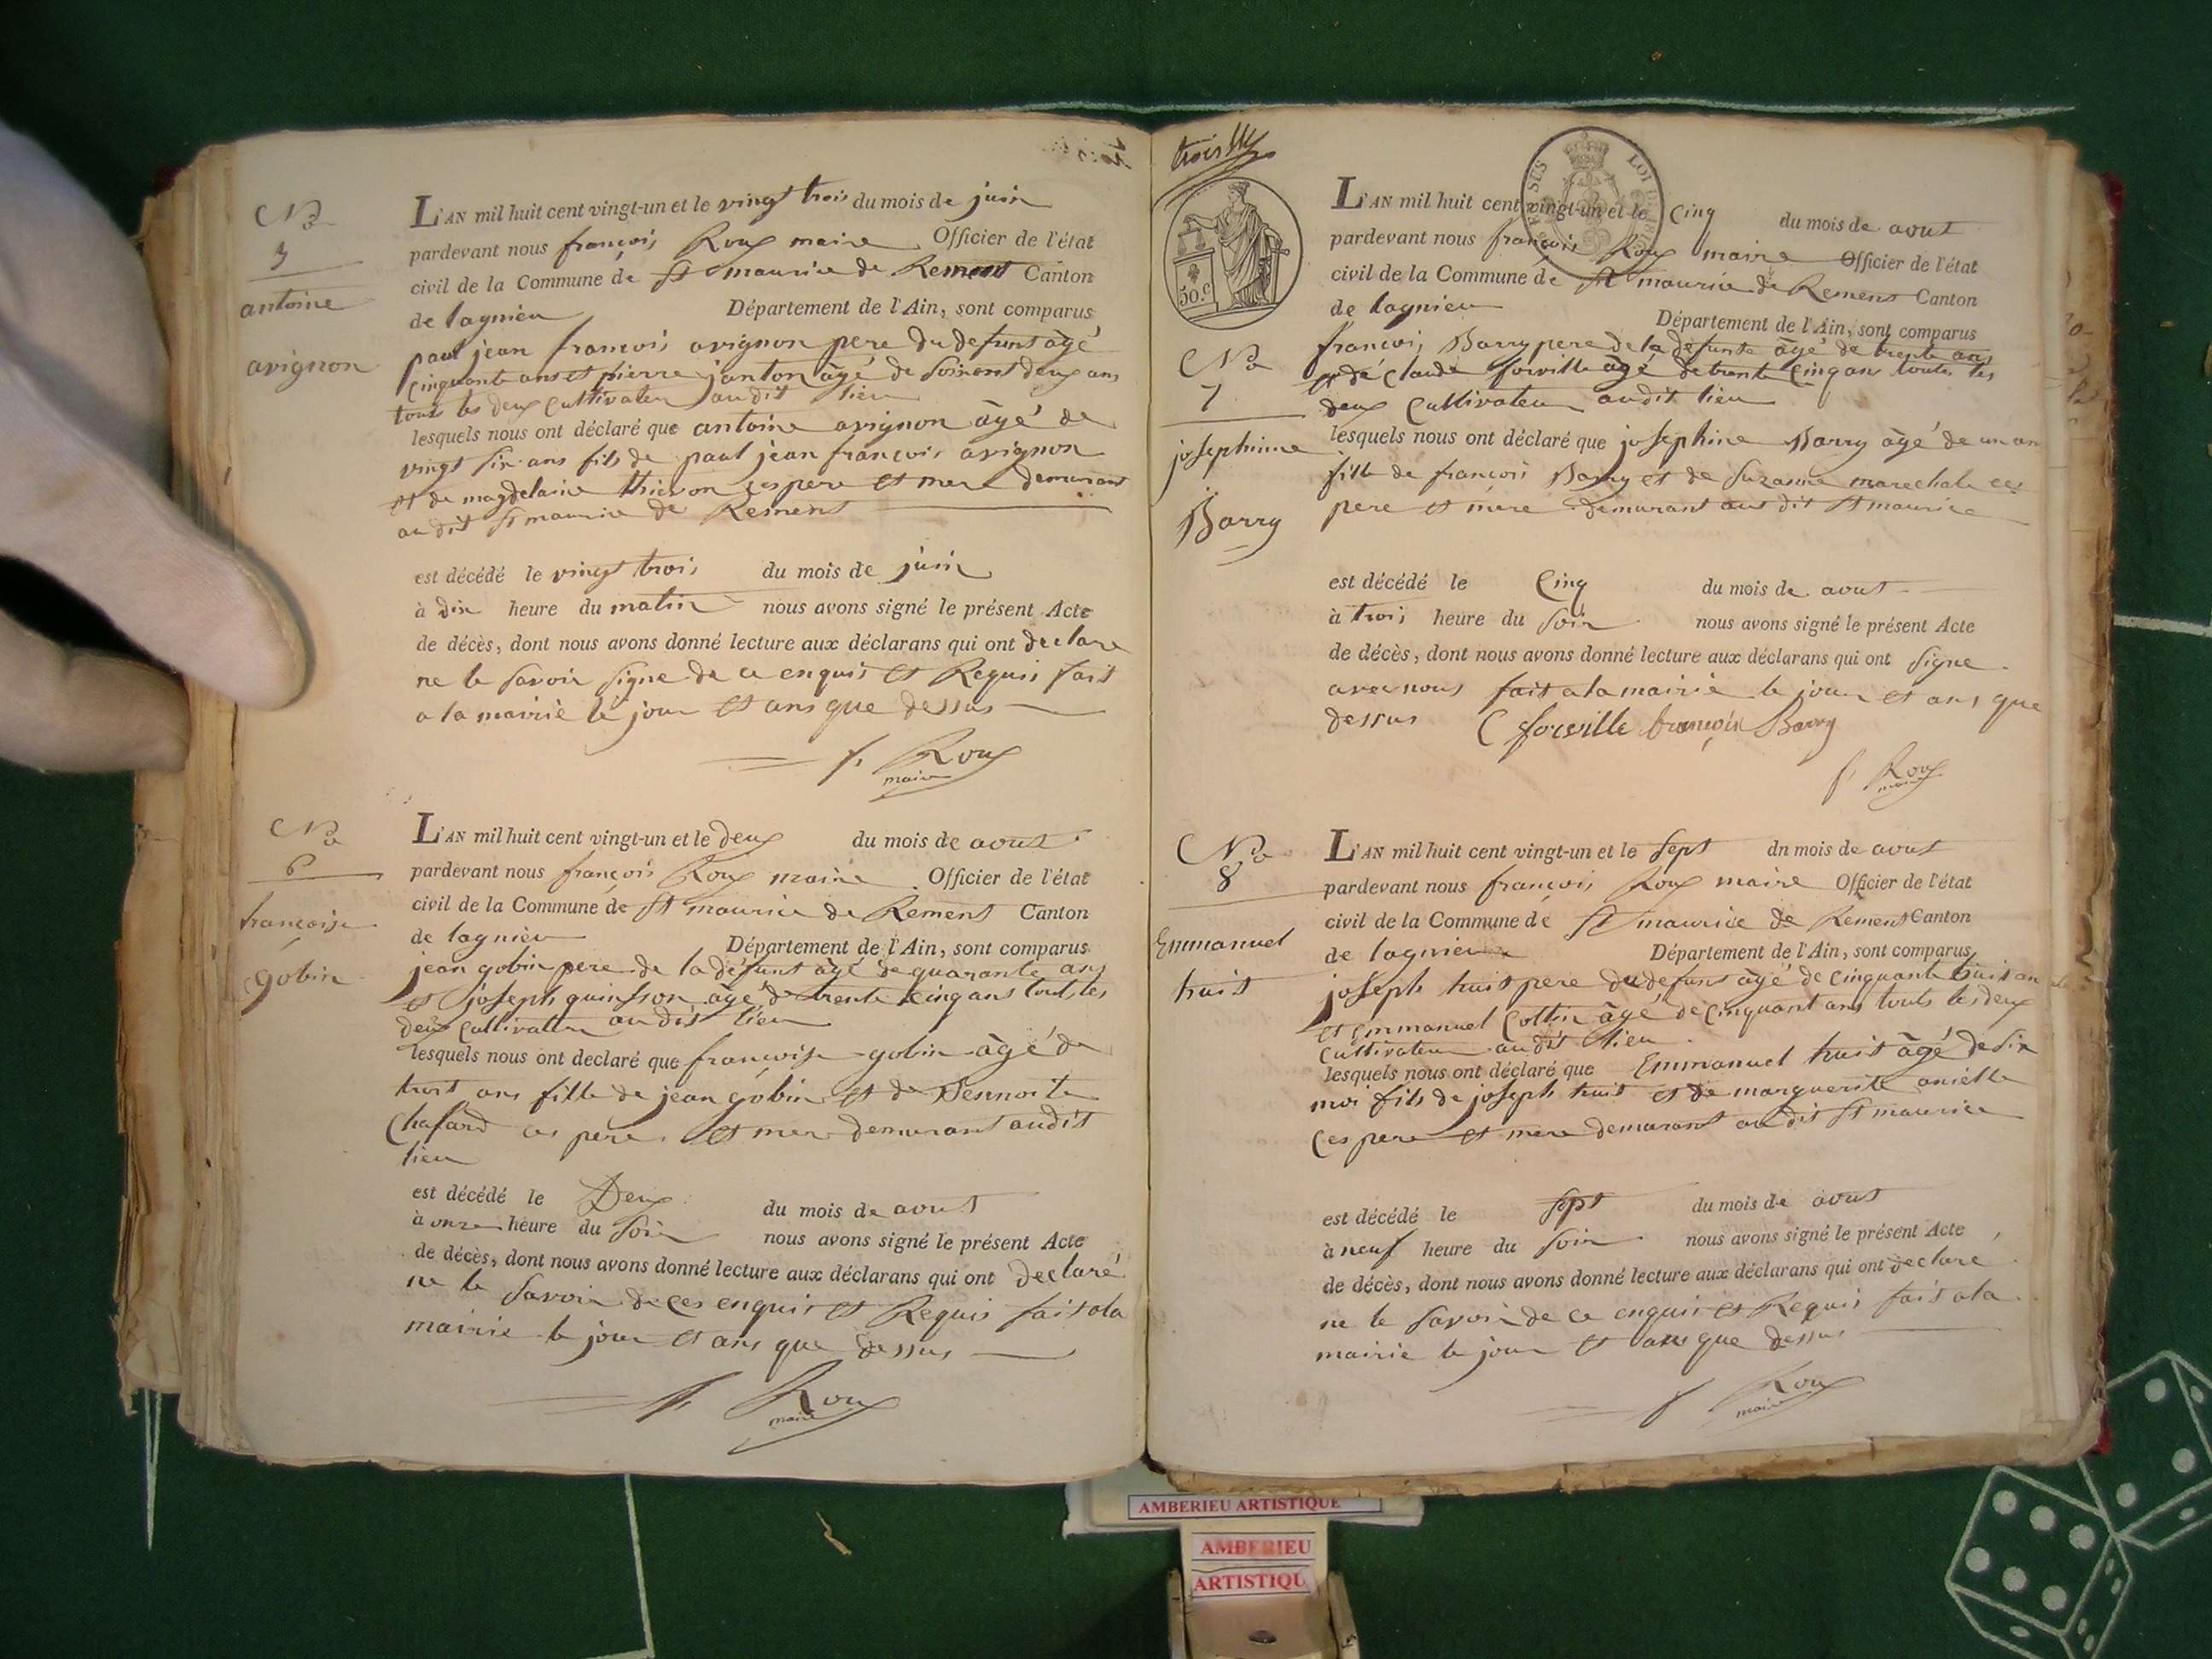 No
5
antoine
avignon
L'AN mil huit cent vingt-un et le vingt trois du mois de juin
pardevant nous françois Roux maire Officier de l'état
civil de la Commune de St maurice de Remens Canton
de lagnieu Département de l'Ain, sont comparus
paul jean francois avignon pere du defunt âgé
cinquante ans et pierre janton âgé de soixent deux ans
touts les deux Cultivateur audit lieu
lesquels nous ont déclaré que antoine avignon âgé de
vingt six ans fils de paul jean françois avignon
et de magdelaine thievon ces pere et mere demurant
au dit St maurice de Remens
est décédé le vingt trois du mois de juin
à dix heure du matin nous avons signé le présent Acte
de décès, dont nous avons donné lecture aux déclarans qui ont declare
ne le savoir signe de ce enquis et Requis fait
a la mairie le jour et ans que dessus
f. Roux
maire
No
6
françoise
gobin
L'AN mil huit cent vingt-un et le deux du mois de aout
pardevant nous françois Roux maire Officier de l'état
civil de la Commune de St maurice de Remens Canton
de lagnieu Département de l'Ain, sont comparus
jean gobin pere de la défunt âgé de quarante ans
et joseph quinson âgé de trente cinq ans touts les
deux Cultivateur audit lieu
lesquels nous ont declaré que françoise gobin âgé de
troit ans fille de jean gobin et de Bennoite
Chafard ces pere et mere demurant audit
lieu
est décédé le Deux du mois de aout
à onze heure du soir nous avons signé le présent Acte
de décès, dont nous avons donné lecture aux déclarans qui ont declaré
ne le savoir de ces enquis et Requis fait ala
mairie le jour et ans que dessus
f. Roux
maire
trois
50.c
SUS LOI
No
7
josephinne
Barry
L'AN mil huit cent vingt-un et le Cinq du mois de aout
pardevant nous françois Roux maire Officier de l'état
civil de la Commune de St maurice de Remens Canton
de lagnieu Département de l'Ain, sont comparus
françois Barry pere de la défunte âgé de trente ans
et de Claude forville âgé de trente cinq ans touts les
deux Cultivateur audit lieu
lesquels nous ont déclaré que josephine Barry âgé de un an
fille de françois Barry et de suzanne marechale ces
pere et mere demurant audit St maurice
est décédé le Cinq du mois de aout
à trois heure du soir nous avons signé le présent Acte
de décès, dont nous avons donné lecture aux déclarans qui ont signe
avec nous fait ala mairie le jour et ans que
dessus C forville françois Barry
f. Roux
maire
No
8
Emmanuel
huit
L'AN mil huit cent vingt-un et le sept dn mois de aout
pardevant nous françois Roux maire Officier de l'état
civil de la Commune de St maurice de Remens Canton
de lagnieu Département de l'Ain, sont comparus
joseph huit pere du defunt âgé de cinquante huit an
et Emmanuel Cottin âgé de cinquant ans touts les deux
Cultivateur audit lieu
lesquels nous ont déclaré que Emmanuel huit âgé de six
moi fils de joseph huit et de marguerite
ces pere et mere demurant au dit St maurice
est décédé le sept du mois de aout
à neuf heure du soir nous avons signé le présent Acte
de décès, dont nous avons donné lecture aux déclarans qui ont declaré
ne le savoir de ce enquis et Requis fait ala
mairie le jour et ans que dessus
f Roux
maire
AMBERIEU ARTISTIQUE
AMBERIEU
ARTISTIQU